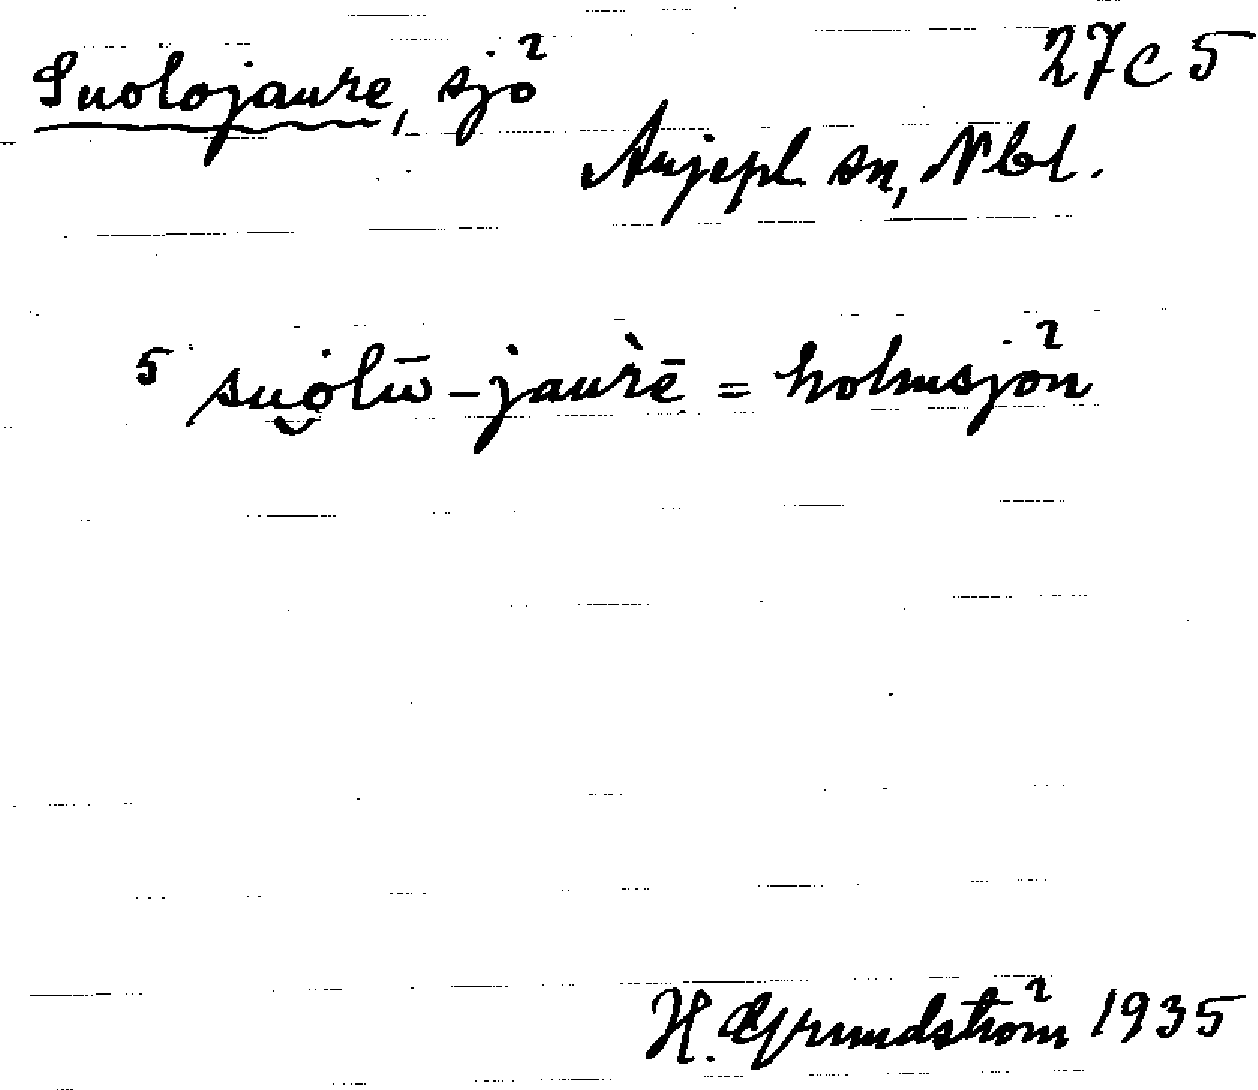 Suolojaure, sjö 27c5
Arjepl sn, Nbl.
5 su̯ȯlū-jaùrē = holmsjön
H. Grundström 1935